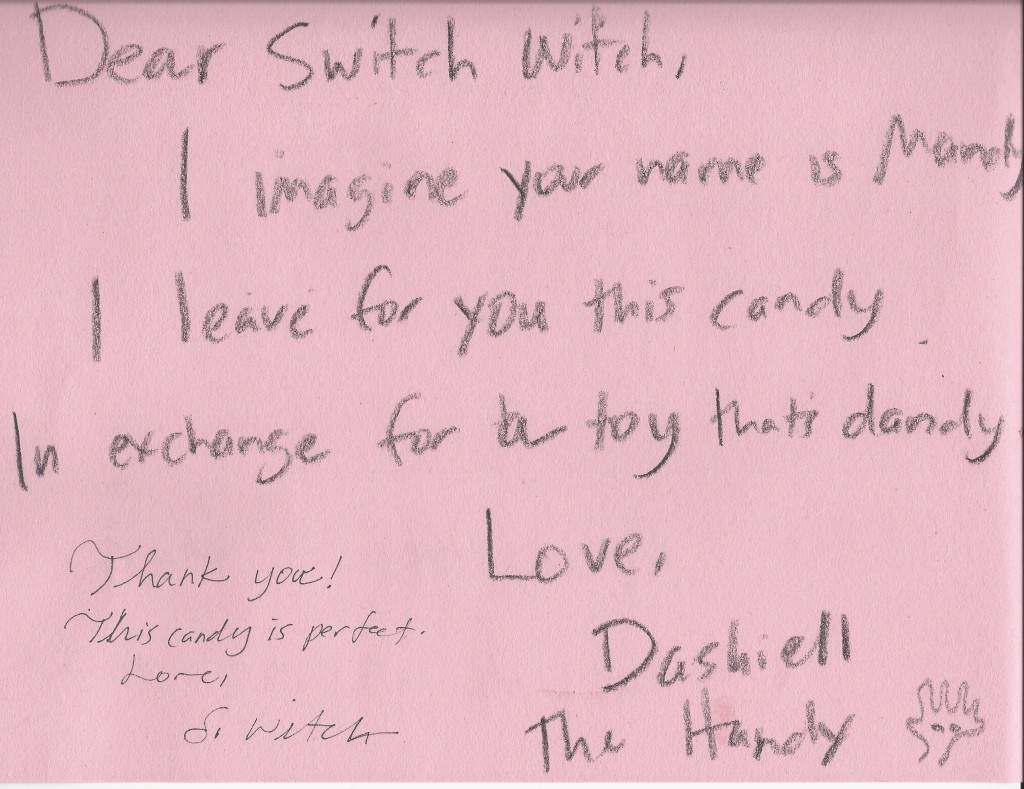 Dear Switch Witch,
I imagine your name is Mandy
I leave for you this candy
In exchange for a toy that's dandy.
Love,
Dashiell
The Handy
Thank you!
This candy is perfect.
Love,
S. Witch